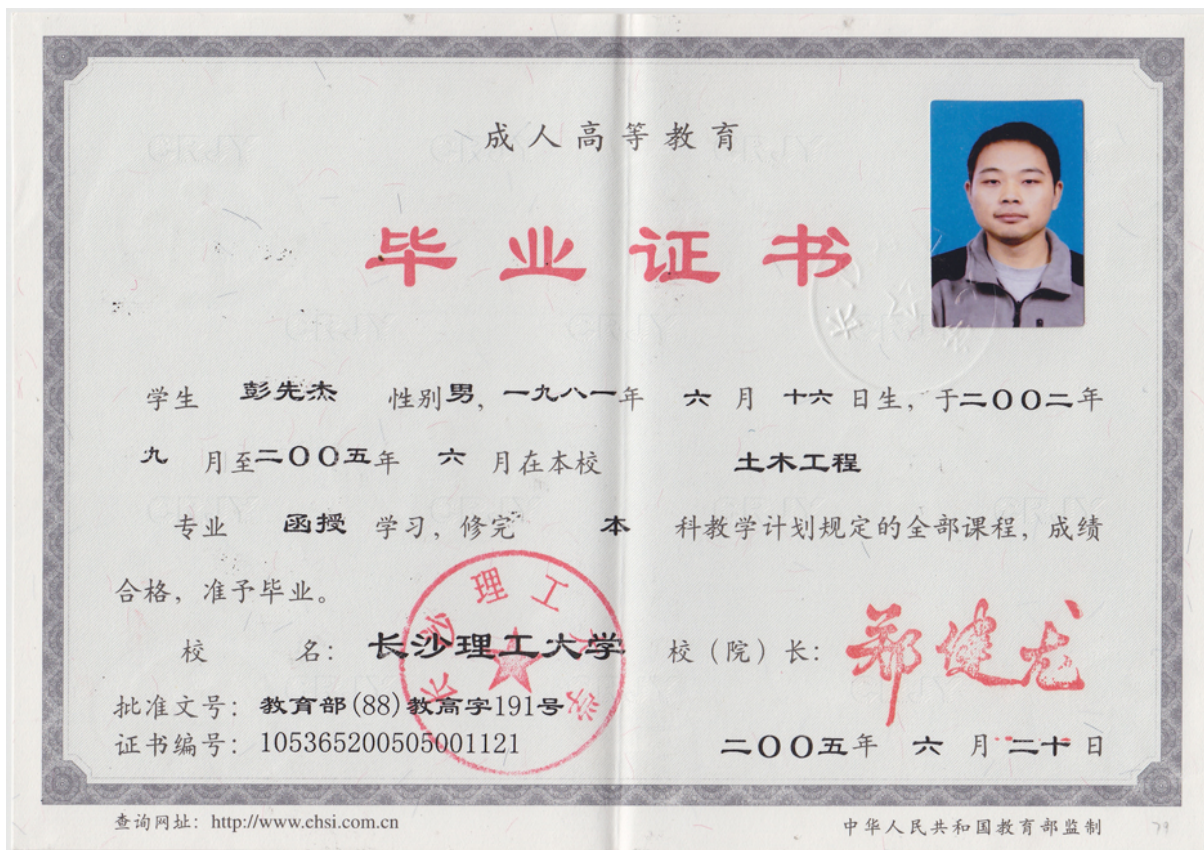 成人高等教育
毕业证书
学生 彭先杰 性别男，一九八一年 六 月 十六 日生，于二〇〇二年
九 月至二〇〇五年 六 月在本校 土木工程
专业 函授 学习，修完 本 科教学计划规定的全部课程，成绩
合格，准予毕业。
校 名：长沙理工大学 校（院）长：郑健龙
批准文号：教育部(88)教高字191号
证书编号：105365200505001121 二〇〇五年 六 月 二十 日
长沙理工大学
查询网址：http://www.chsi.com.cn 中华人民共和国教育部监制
79